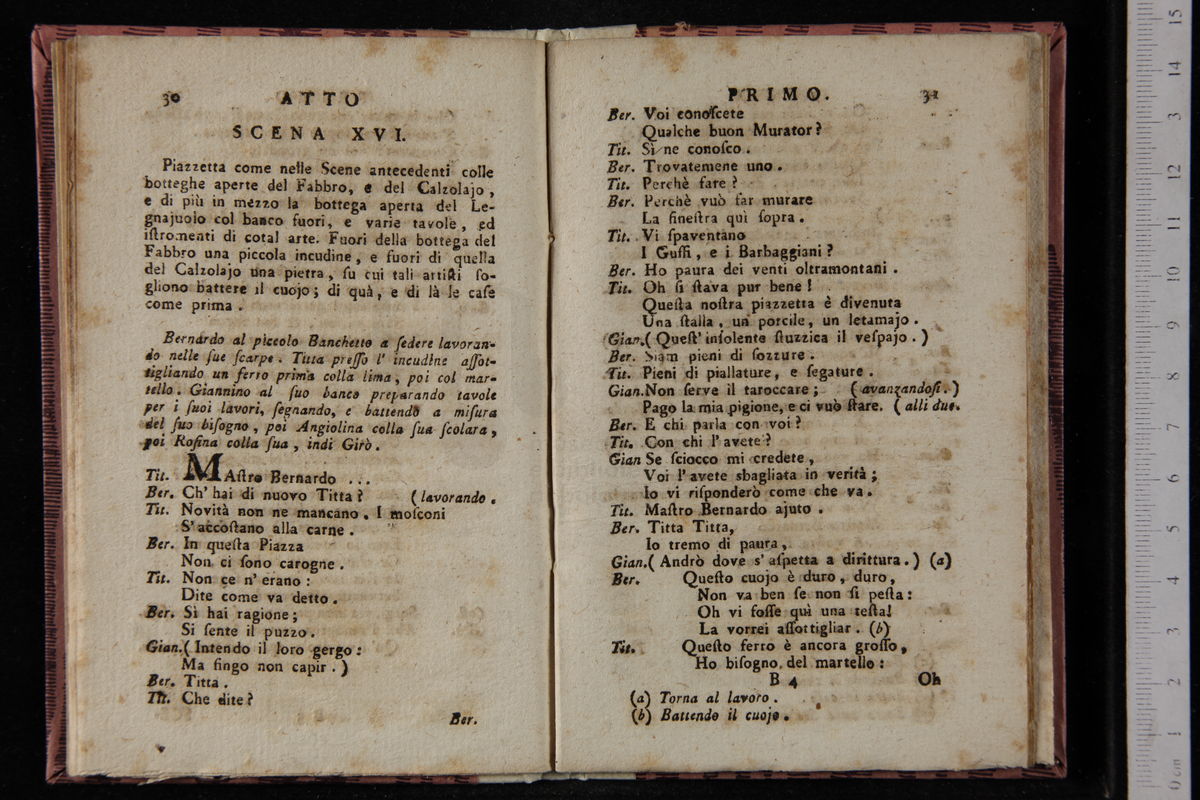 30 ATTO
SCENA XVI.
Piazzetta come nelle Scene antecedenti colle
botteghe aperte del Fabbro, e del Calzolajo,
e di più in mezzo la bottega aperta del Le-
gnajuolo col banco fuori, e varie tavole, ed
iſtromenti di cotal arte. Fuori della bottega del
Fabbro una piccola incudine, e fuori di quella
del Calzolajo una pietra, ſu cui tali artiſti ſo-
gliono battere il cuojo; di quà, e di là le caſe
come prima.
Bernardo al piccolo Banchetto a ſedere lavoran-
do nelle ſue ſcarpe. Titta preſſo l' incudine aſſot-
tigliando un ferro prima colla lima, poi col mar-
tello. Giannino al ſuo banco preparando tavole
per i ſuoi lavori, ſegnando, e battendo a miſura
del ſuo biſogno, poi Angiolina colla ſua ſcolara,
poi Roſina colla ſua, indi Girò.
Tit. MAſtro Bernardo ...
Ber. Ch' hai di nuovo Titta? (lavorando.
Tit. Novità non ne mancano. I moſconi
S' accoſtano alla carne.
Ber. In queſta Piazza
Non ci ſono carogne.
Tit. Non ce n' erano:
Dite come va detto.
Ber. Sì hai ragione;
Si ſente il puzzo.
Gian.(Intendo il loro gergo:
Ma fingo non capir.)
Ber. Titta.
Tit. Che dite?
Ber.
PRIMO. 31
Ber. Voi conoſcete
Qualche buon Murator?
Tit. Sì ne conoſco.
Ber. Trovatemene uno.
Tit. Perchè fare?
Ber. Perchè vuò far murare
La fineſtra quì ſopra.
Tit. Vi ſpaventano
I Guffi, e i Barbaggiani?
Ber. Ho paura dei venti oltramontani.
Tit. Oh ſi ſtava pur bene!
Queſta noſtra piazzetta è divenuta
Una ſtalla, un porcile, un letamajo.
Gian.(Queſt' inſolente ſtuzzica il veſpajo.)
Ber. Siam pieni di ſozzure.
Tit. Pieni di piallature, e ſegature.
Gian.Non ſerve il taroccare; (avanzandoſi.)
Pago la mia pigione, e ci vuò ſtare. (alli due.
Ber. E chi parla con voi?
Tit. Con chi l' avete?
Gian Se ſciocco mi credete,
Voi l' avete sbagliata in verità;
Io vi riſponderò come che va.
Tit. Maſtro Bernardo ajuto.
Ber. Titta Titta,
Io tremo di paura,
Gian.(Andrò dove s' aſpetta a dirittura.) (a)
Ber. Queſto cuojo è duro, duro,
Non va ben ſe non ſi peſta:
Oh vi foſſe quà una teſta!
La vorrei aſſottigliar. (b)
Tit. Queſto ferro è ancora groſſo,
Ho biſogno del martello:
B 4 Oh
(a) Torna al lavoro.
(b) Battendo il cuojo.
15
14
13
12
11
10
9
8
7
6
5
4
3
2
1
0 cm